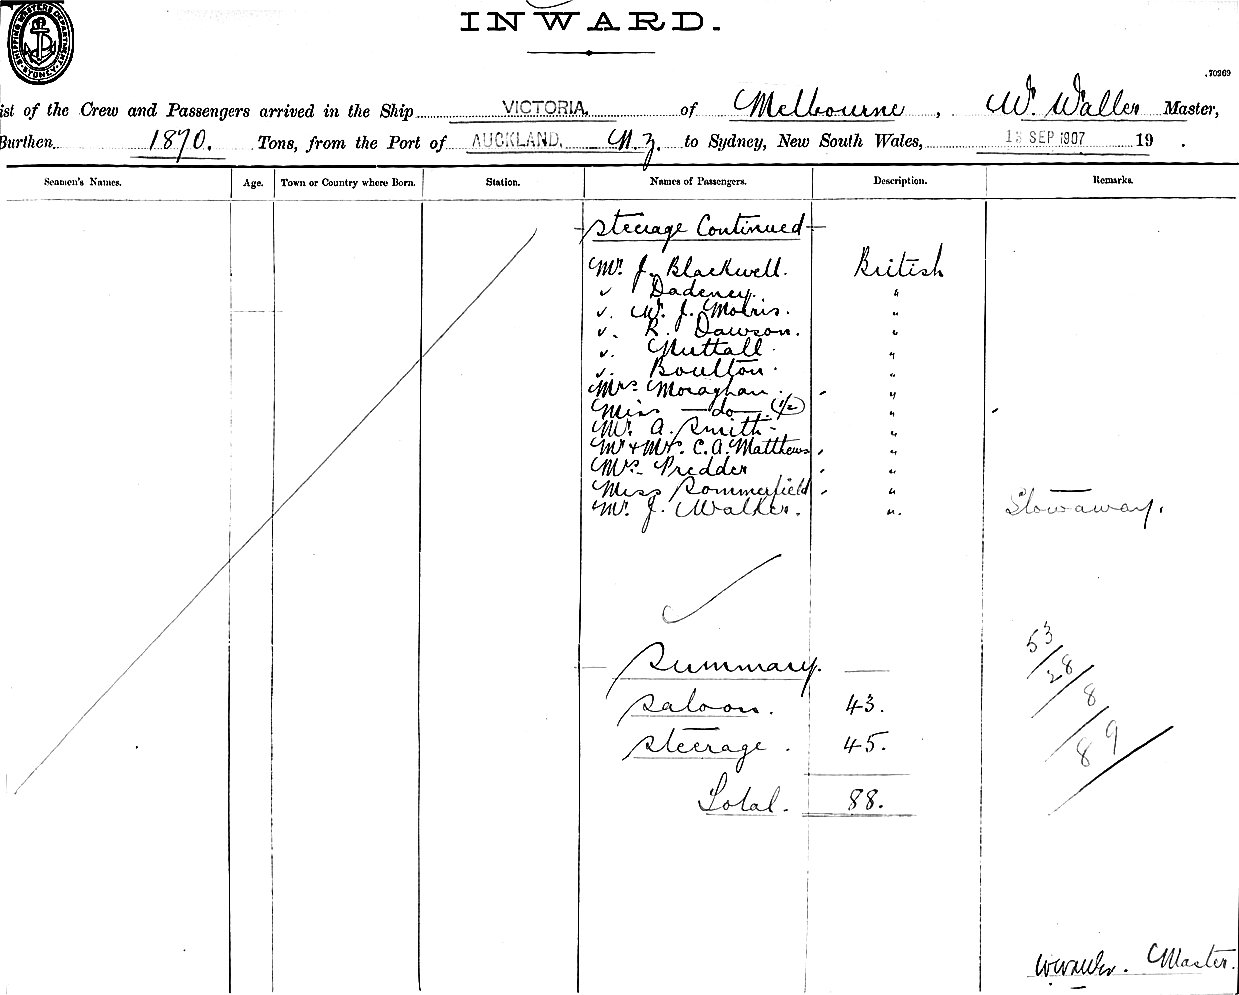 SHIPPING MASTERS DEPARTMENT SYDNEY
INWARD.
.70369
ist of the Crew and Passengers arrived in the Ship VICTORIA, of Melbourne, W. Waller Master,
Burthen 1870. Tons, from the Port of AUCKLAND, N.Z. to Sydney, New South Wales, 13 SEP 1907 19 .
Seamen's Names. Age. Town or Country where Born. Station. Names of Passengers. Description. Remarks.
Steerage Continued
Mr. J. Blackwell. British
✓ Dadeney. "
✓. W. J. Morris. "
✓. R. Dawson. "
✓. Nuttall. "
✓. Boulton. "
Mrs. Moraghan. "
Miss —do— (1/2) "
Mr. A. Smith - "
Mr & Mrs. C. A. Matthews "
Mrs. Predder "
Miss Sommerfield "
Mr. J. Walker. " Stowaway.
Summary.
Saloon. 43.
Steerage. 45.
Total. 88.
53/28/8/89
W Waller. Master.